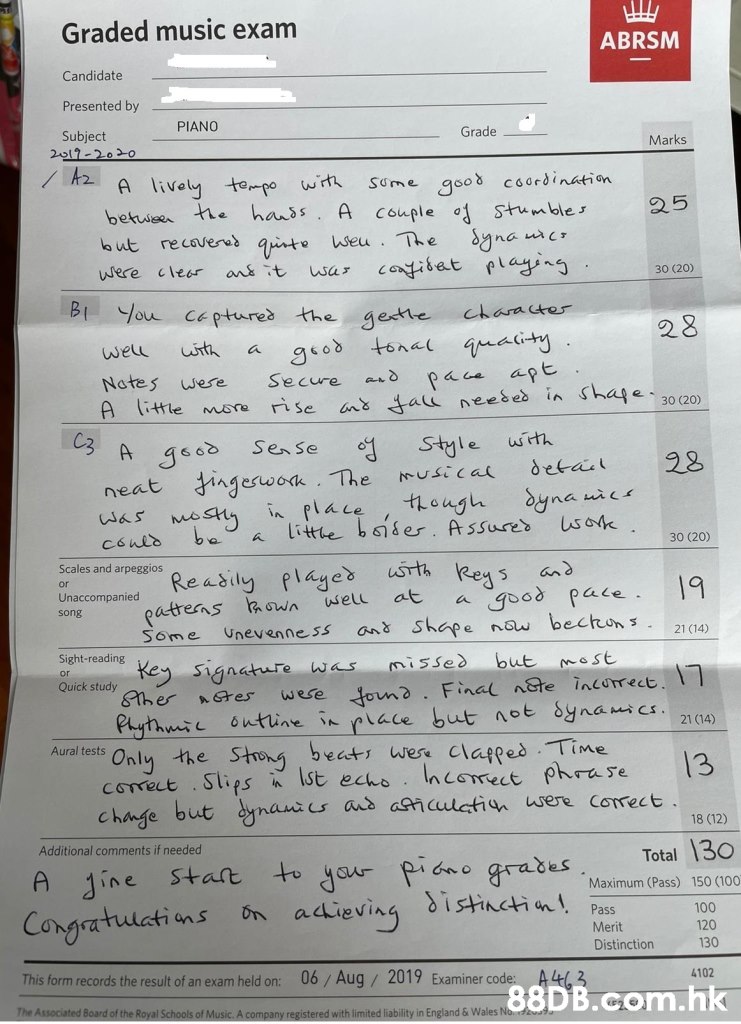 Graded music exam
ABRSM
Candidate
Presented by
Subject PIANO Grade
2019-2020 Marks
A2 A lively tempo with some good coordination
between the hands. A couple of stumbles 25
but recovered quite well. The dynamics
were clear and it was confident playing. 30 (20)
B1 You captured the gentle character
well with a good tonal quality. 28
Notes were secure and pace apt.
A little more rise and fall needed in shape. 30 (20)
C3 A good sense of style with
neat fingerwork. The musical detail 28
was mostly in place, though dynamics
could be a little bolder. Assured work. 30 (20)
Scales and arpeggios
or
Unaccompanied
song
Readily played with keys and
patterns known well at a good pace. 19
Some unevenness and shape now beckons. 21 (14)
Sight-reading
or
Quick study
Key signature was missed but most
other notes were found. Final note incorrect. 17
Rhythmic outline in place but not dynamics. 21 (14)
Aural tests Only the strong beats were clapped. Time
correct. Slips in 1st echo. Incorrect phrase 13
change but dynamics and articulation were correct. 18 (12)
Additional comments if needed Total 130
A fine start to your piano grades. Maximum (Pass) 150 (100)
Congratulations on achieving distinction!
Pass 100
Merit 120
Distinction 130
This form records the result of an exam held on: 06 / Aug / 2019 Examiner code: A463 4102
88DB.com.hk
The Associated Board of the Royal Schools of Music. A company registered with limited liability in England & Wales No.